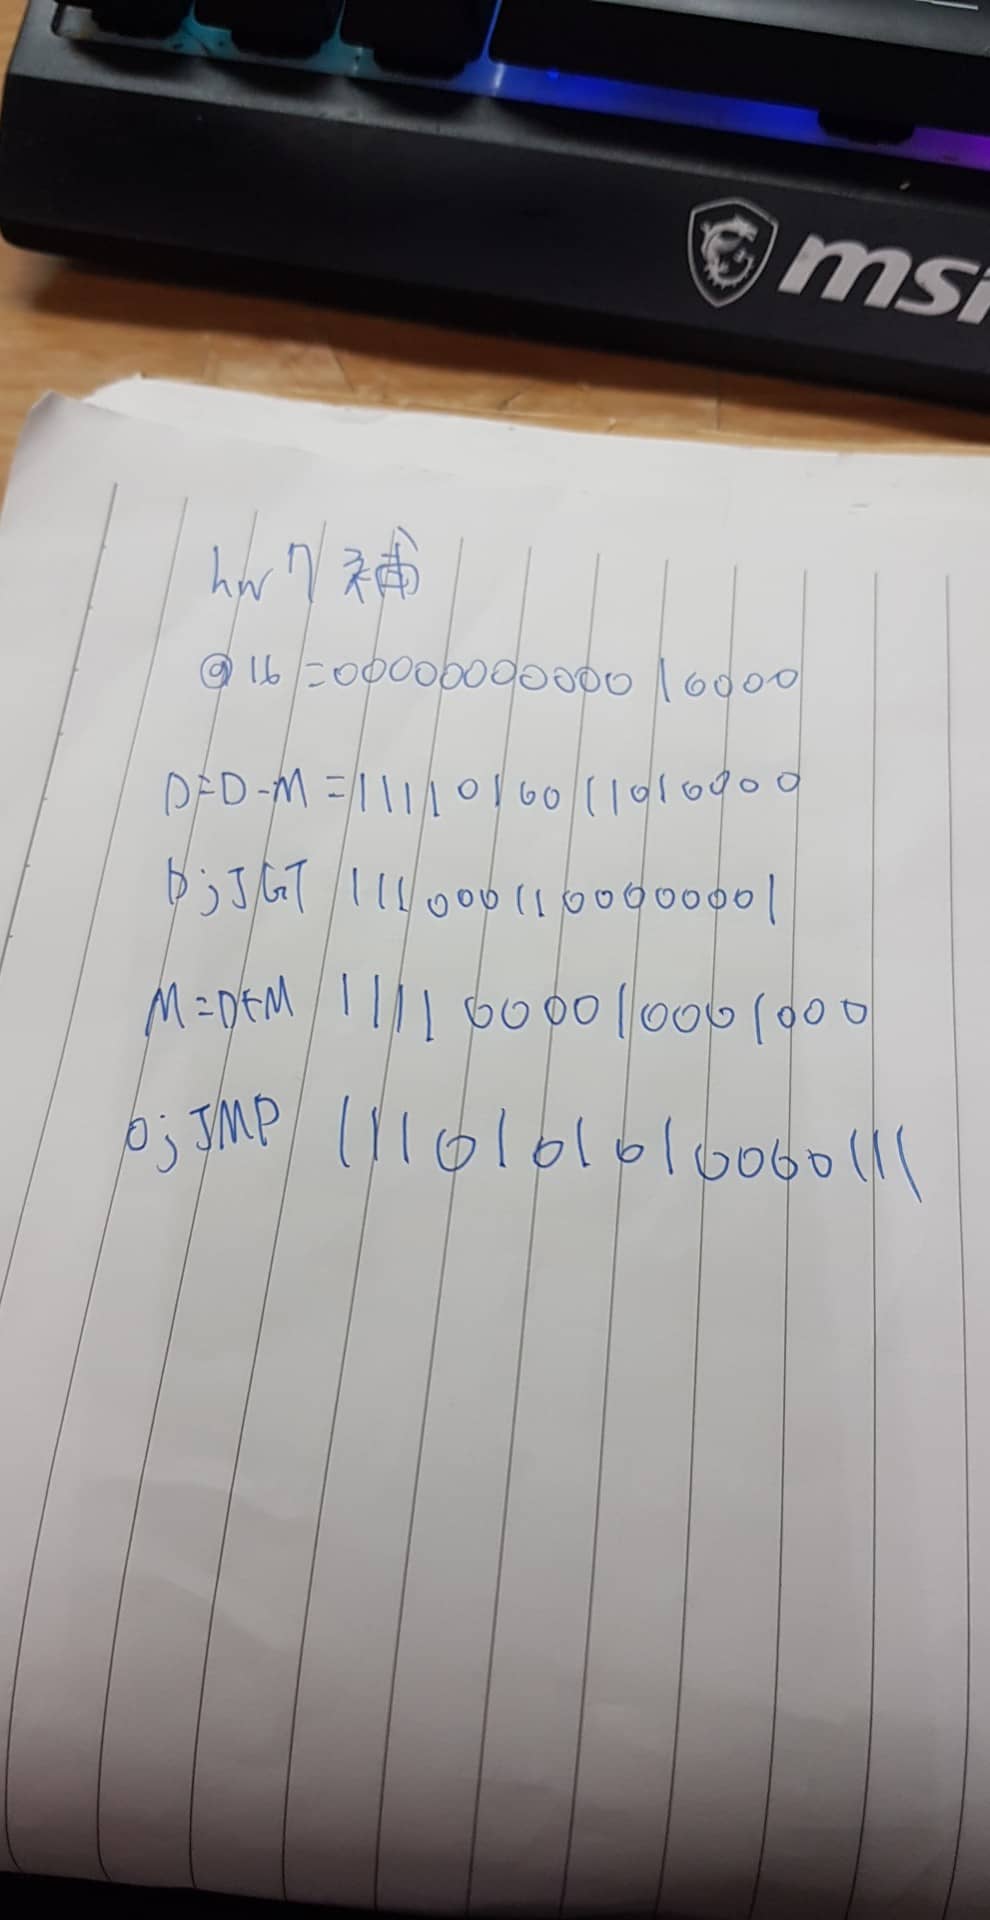 msi
hw7 補
@16 =0000000000010000
D=D-M =1111010011010000
D;JGT 1110001100000001
M=D+M 1111000010001000
0;JMP 1110101010000111